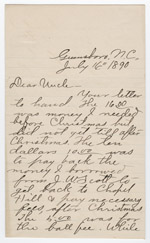 Greensboro, N.C.
July 16" 1890
Dear Uncle-
Your letter
to hand. The 16.00
was money I needed
before Christmas but
did not get till after
Christmas. The ten
dollars 10.00 was
to pay back the
money I borrowed
from J. W. Scott to
get back to Chapel
Hill & pay necessary
dues after Christmas.
The 6.00 was for
the ball fee. While